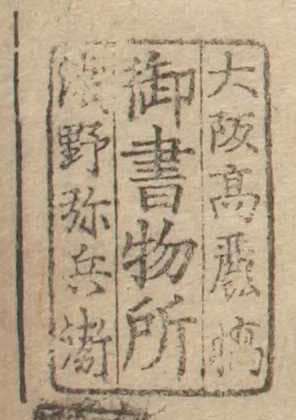 大阪高麗橋
御書物所
浅野弥兵衛